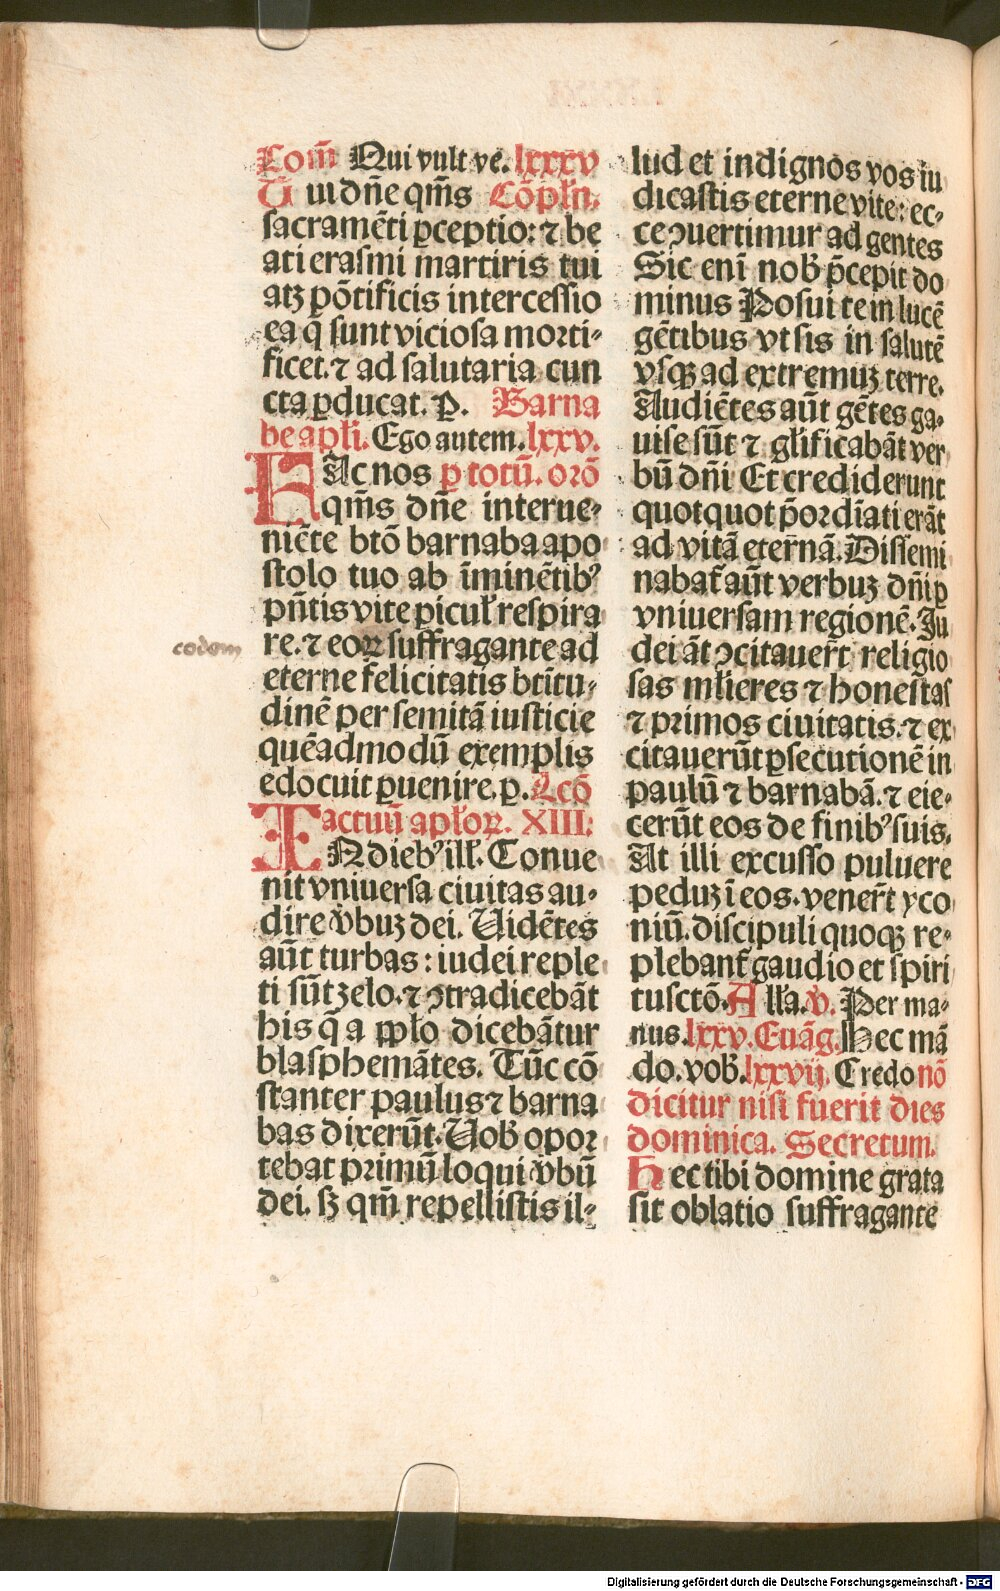 Com̄ Qui vult ve. lxxxv
Tui dn̄e qm̄s Cōpłn.
sacramēti ꝑceptio: ⁊ be
ati erasmi martiris tui
atꝫ pōtificis intercessio
ea q̄ sunt viciosa morti-
ficet. ⁊ ad salutaria cun
cta ꝑducat. ꝑ. Barna
be apłi. Ego autem. lxxv.
HAc nos ꝑ totū. orō
qm̄s dn̄e interue-
niēte btō barnaba apo
stolo tuo ab īminētibꝰ
pn̄tis vite ꝑicuł respira
re. ⁊ eoꝝ suffragante ad
eterne felicitatis btītu-
dinē per semitā iusticie
quēadmodū exemplis
edocuit ꝑuenire. ꝑ. Lcō
actuū apłoꝝ. XIII:
IN diebꝰ ill̄. Conue
nit vniuersa ciuitas au-
dire v̄buꝫ dei. Uidētes
aūt turbas: iudei reple
ti sūt zelo. ⁊ ꝯtradicebāt
his q̄ a pꝑło dicebātur
blasphemātes. Tūc cō
stanter paulus ⁊ barna
bas dixerūt. Uob̄ opor
tebat primū loqui v̄bū
dei. sꝫ qm̄ repellistis il-
lud et indignos vos iu
dicastis eterne vite: ec-
ce ꝯuertimur ad gentes
Sic enī nob̄ p̄cepit do
minus Posui te in lucē
gētibus vt sis in salutē
vsqꝫ ad extremuꝫ terre.
Audiētes aūt gētes ga-
uise sūt ⁊ głificabāt ver
bū dn̄i Et crediderunt
quotquot p̄ordīati erāt
ad vitā eternā. Dissemi
nabat̄ aūt verbuꝫ dn̄i ꝑ
vniuersam regionē. Iu
dei āt ꝯcitauer̄t religio
sas młieres ⁊ honestas
⁊ primos ciuitatis. ⁊ ex
citauerūt ꝑsecutionē in
paulū ⁊ barnabā. ⁊ eie-
cerūt eos de finibꝰ suis.
At illi excusso puluere
peduꝫ ī eos. vener̄t yco
niū. discipuli quoqꝫ re-
plebant̄ gaudio et spiri
tusctō. Alła. v̄. Per ma-
nus. lxxv. Euāg. Hec mā
do. vob̄. lxxvij. Credo nō
dicitur nisi fuerit dies
dominica. Secretum.
Hec tibi domine grata
sit oblatio suffragante
codem
Digitalisierung gefördert durch die Deutsche Forschungsgemeinschaft - DFG